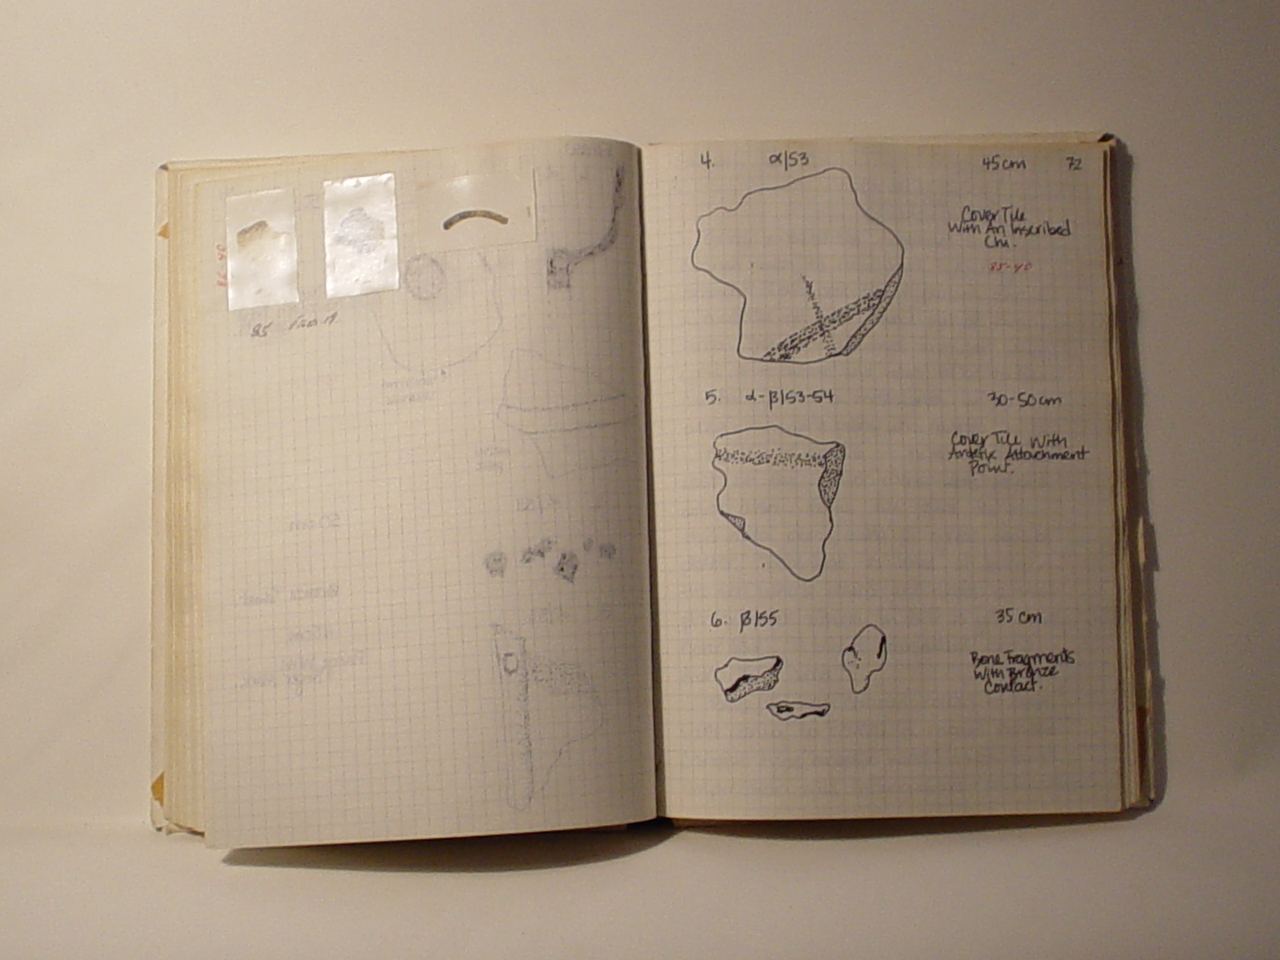 85
4. α/53 45cm 72
Cover Tile
With An Inscribed
Chi.
85-40
5. α-β/53-54 30-50cm
Cover Tile With
Antefix Attachment
Point.
6. β/55 35 cm
Bone Fragments
With Bronze
Contact.